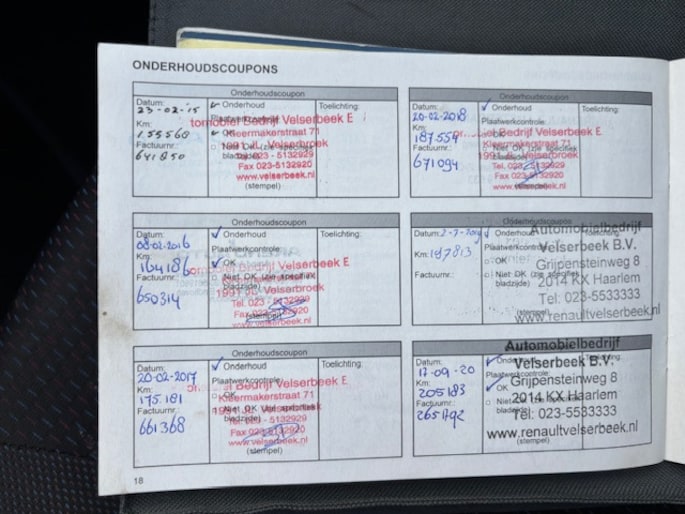 ONDERHOUDSCOUPONS
Onderhoudscoupon
Datum:
23-02-15
Km:
155560
Factuurnr.:
641850
Onderhoud
Plaatwerkcontrole:
OK
Niet OK (zie specifieke
bladzijde)
Toelichting:
tomobiel Bedrijf Velserbeek E
Kleermakerstraat 71
1991 JL Velserbroek
Tel. 023 - 5132929
Fax 023-5132920
www.velserbeek.nl
(stempel)
Onderhoudscoupon
Datum:
20-02-2018
Km:
187.554
Factuurnr.:
671094
Onderhoud
Plaatwerkcontrole:
OK
Niet OK (zie specifieke
bladzijde)
Toelichting:
Bedrijf Velserbeek E
Kleermakerstraat 71
1991 JL Velserbroek
Tel. 023 - 5132929
Fax 023-5132920
www.velserbeek.nl
(stempel)
Onderhoudscoupon
Datum:
08-02-2016
Km:
164186
Factuurnr.:
650314
Onderhoud
Plaatwerkcontrole:
OK
Niet OK (zie specifieke
bladzijde)
Toelichting:
tomobiel Bedrijf Velserbeek E
1991 JL Velserbroek
Tel. 023 - 5132929
Fax 023-5132920
www.velserbeek.nl
(stempel)
Onderhoudscoupon
Datum:
Km:
197813
Factuurnr.:
Onderhoud
Plaatwerkcontrole:
OK
Niet OK (zie specifieke
bladzijde)
Toelichting:
Automobielbedrijf
Velserbeek B.V.
Grijpensteinweg 8
2014 KX Haarlem
Tel: 023-5533333
www.renaultvelserbeek.nl
(stempel)
Onderhoudscoupon
Datum:
20-02-2017
Km:
175.181
Factuurnr.:
661368
Onderhoud
Plaatwerkcontrole:
OK
Niet OK (zie specifieke
bladzijde)
Toelichting:
Bedrijf Velserbeek E
Kleermakerstraat 71
1991 JL Velserbroek
Tel. 023 - 5132929
Fax 023-5132920
www.velserbeek.nl
(stempel)
Datum:
17-09-20
Km:
205183
Factuurnr.:
2651792
Onderhoud
Plaatwerkcontrole:
OK
Niet OK (zie specifieke
bladzijde)
Toelichting:
Automobielbedrijf
Velserbeek B.V.
Grijpensteinweg 8
2014 KX Haarlem
Tel: 023-5533333
www.renaultvelserbeek.nl
(stempel)
18